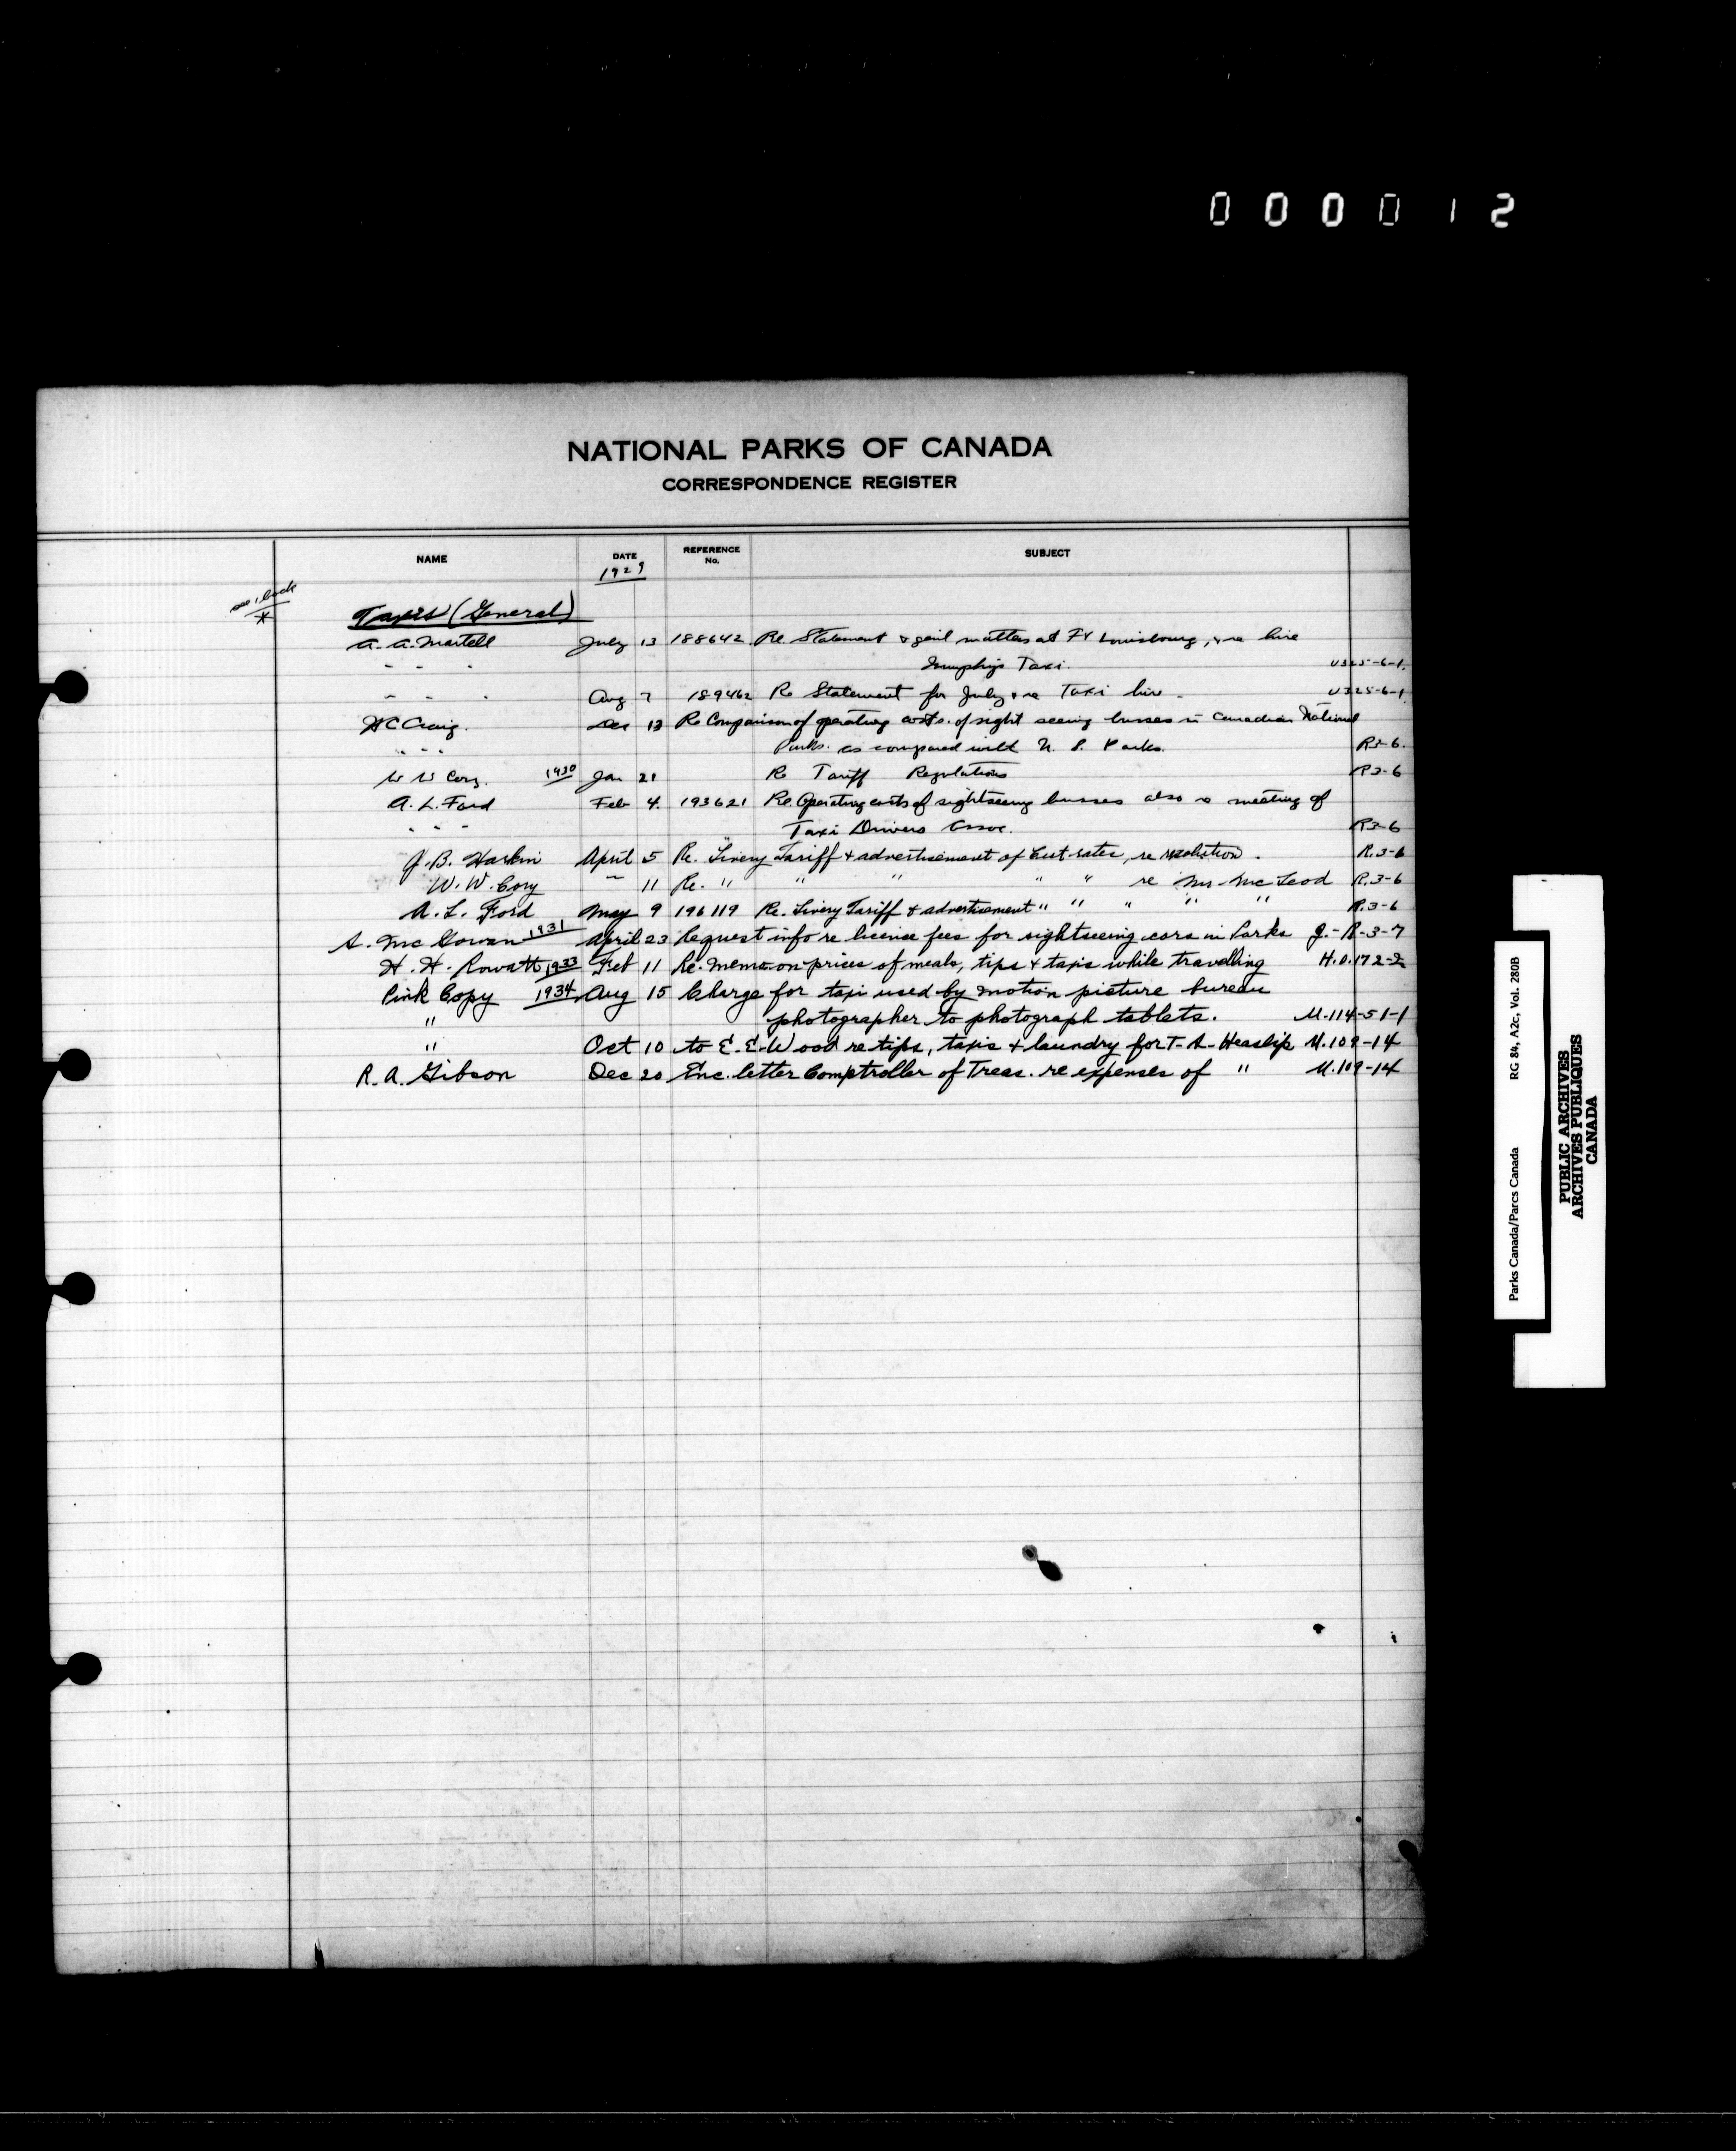 000012
NATIONAL PARKS OF CANADA
CORRESPONDENCE REGISTER
NAME DATE REFERENCE No. SUBJECT
1929
see back
*
Taxis (General)
A. A. Martell July 13 188642 Re Statement & genl matters at Ft Louisbourg, & re hire
" " " Taxi. U325-6-1.
" " " Aug 7 189462 Re Statement for July & re Taxi hire - U325-6-1
H C Craig. Dec 13 Re Comparison of operating costs. of sight seeing busses in Canadian National
" " " Parks. as compared with U. S. Parks. R3-6.
W W Cory. 1930 Jan 21 Re Tariff Regulations R3-6
A. L. Ford Feb 4. 193621 Re Operating costs of sightseeing busses also re meeting of
" " " Taxi Drivers Assoc. R3-6
J. B. Harkin April 5 Re. Livery Tariff & advertisement of Cut rates, re resolution. R.3-6
W. W. Cory " 11 Re. " " " " " re Mr. McLeod R.3-6
A. L. Ford May 9 196119 Re. Livery Tariff & advertisement " " " " " R.3-6
S. McGowan 1931 April 23 Request info re license fees for sightseeing cars in Parks J.-R-3-7
H. H. Rowatt 1933 Feb 11 Re. Memo. on prices of meals, tips & taxis while travelling H.O.172-2
Pink Copy 1934 Aug 15 Charge for taxi used by motion picture bureau
" photographer to photograph tablets. M-114-51-1
" Oct 10 to E. E. Wood re tips, taxis & laundry for T. A. Heaslip M.109-14
R. A. Gibson Dec 20 Enc. letter Comptroller of Treas. re expenses of " M.109-14
Parks Canada/Parcs Canada RG 84, A2c, Vol. 280B
PUBLIC ARCHIVES
ARCHIVES PUBLIQUES
CANADA